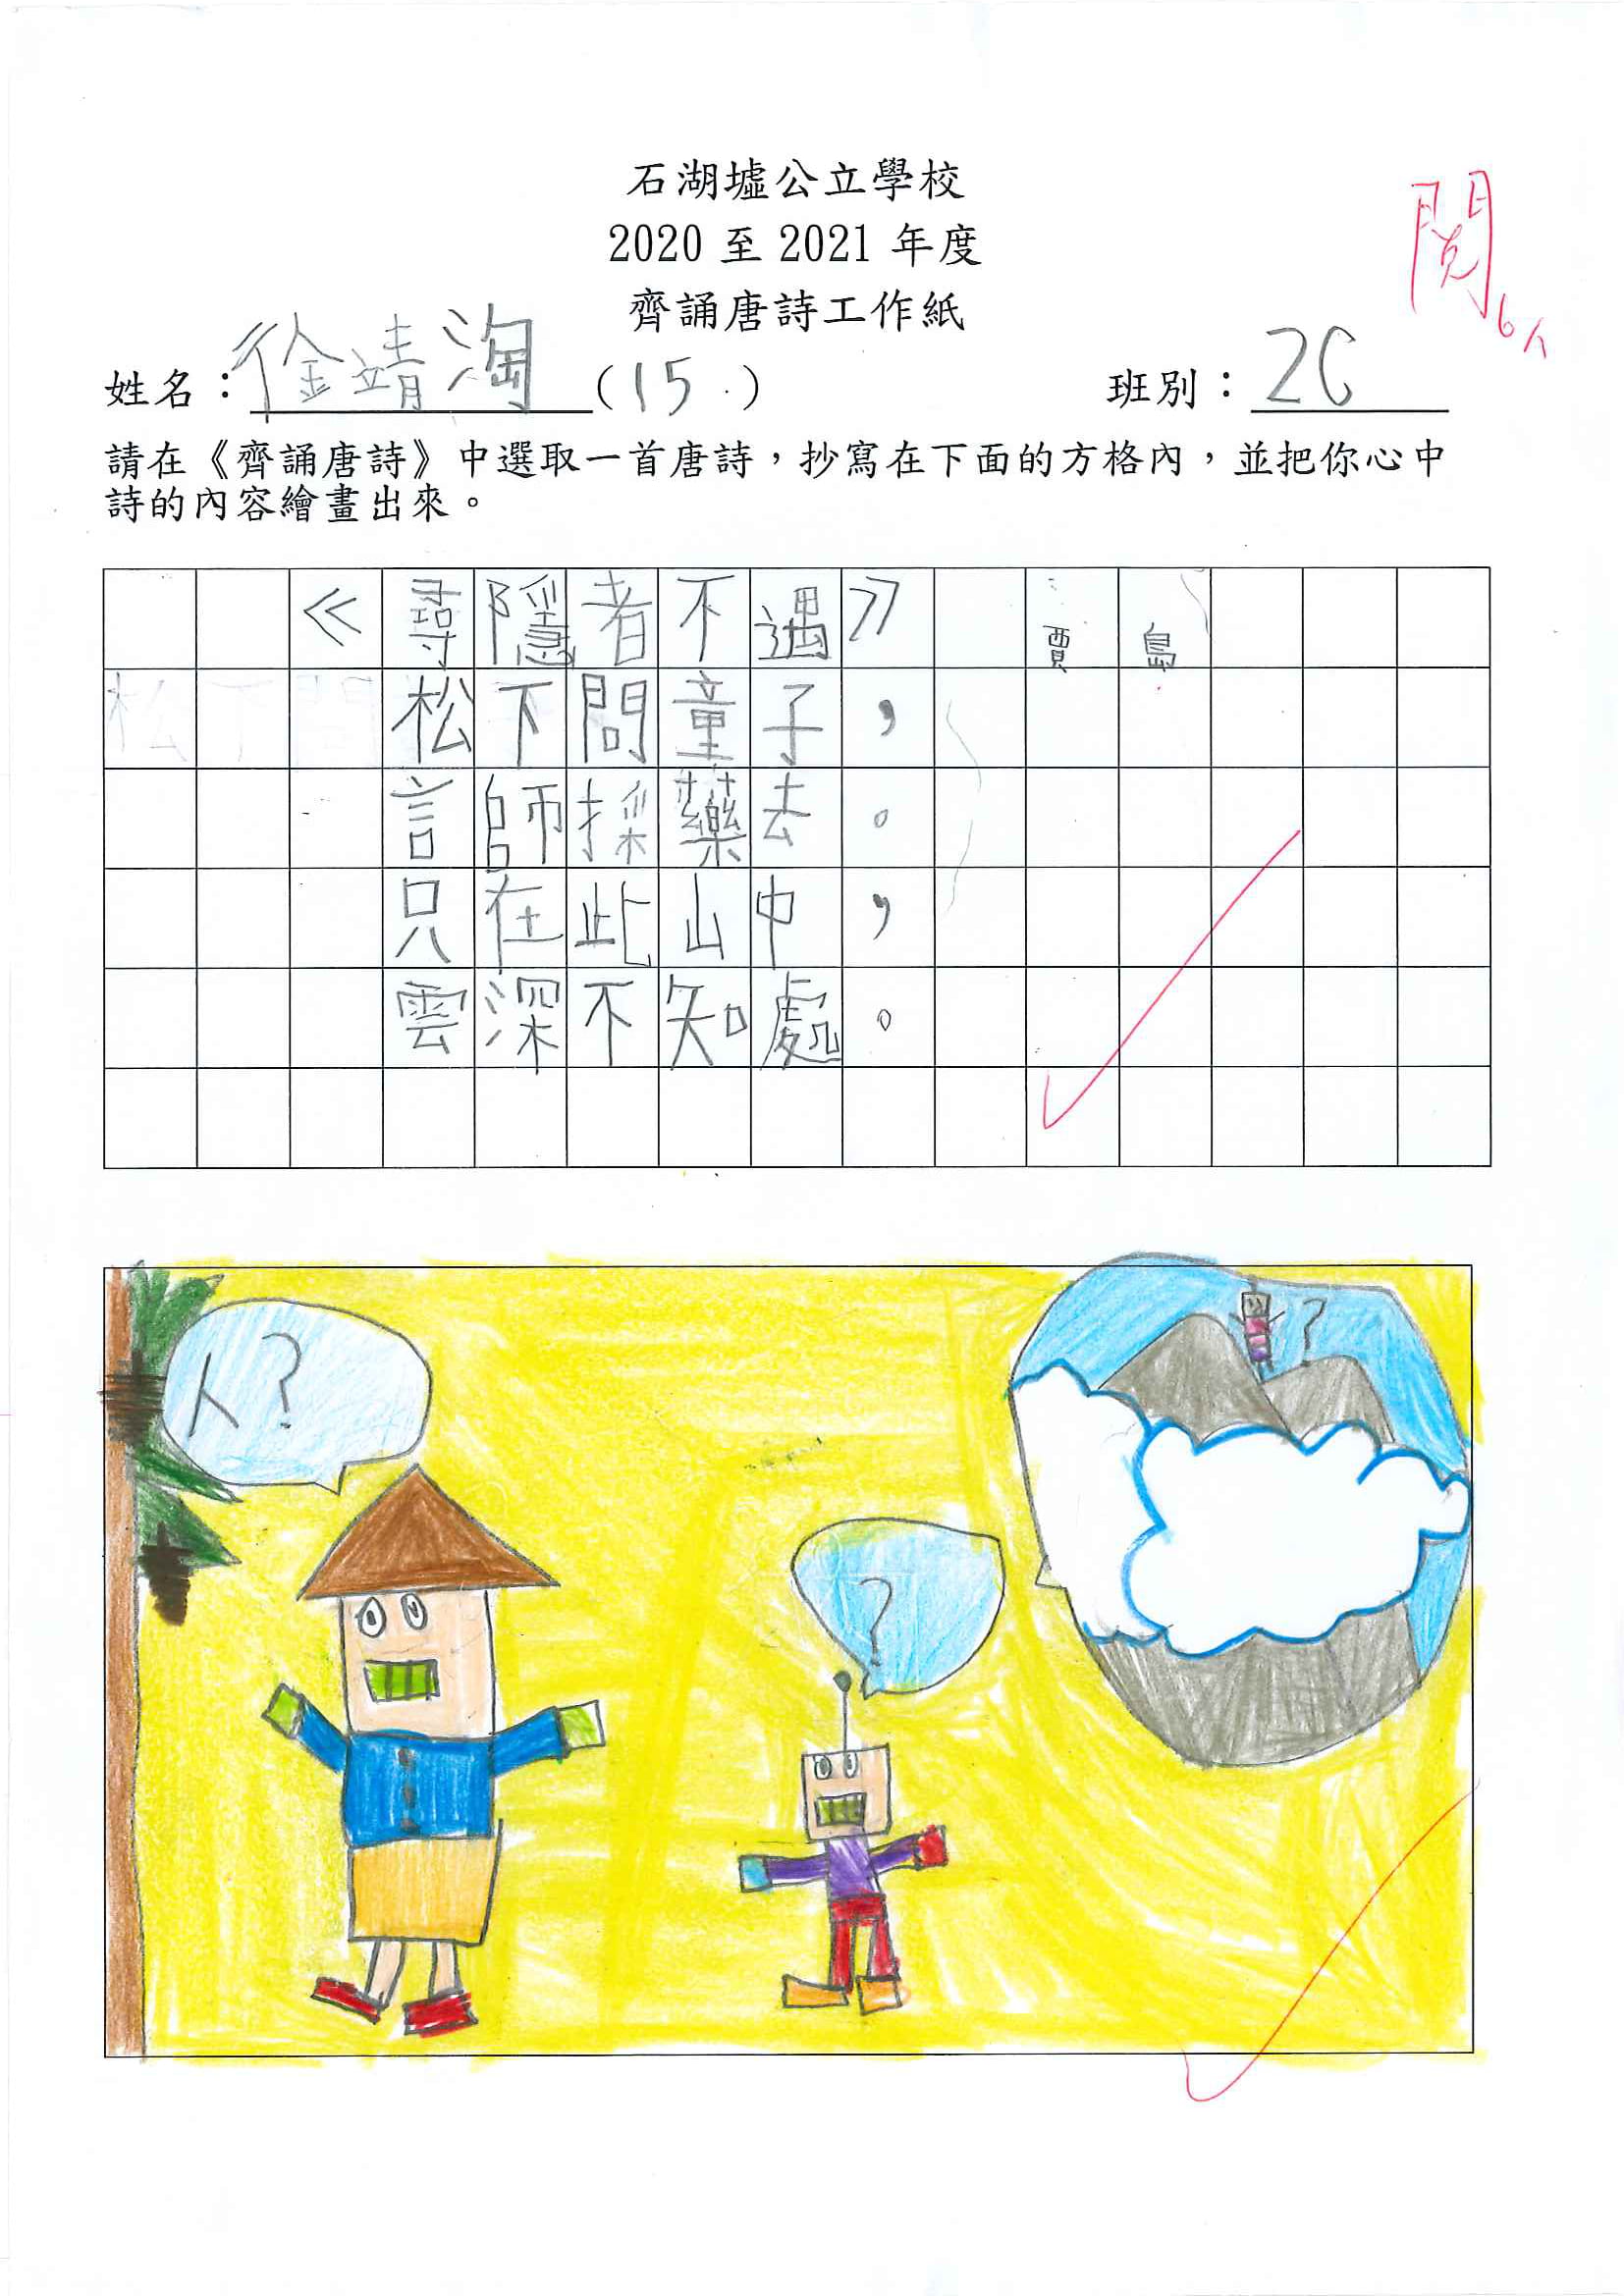 石湖墟公立學校
2020 至 2021 年度
齊誦唐詩工作紙
閱
姓名：徐靖淘（15） 班別：2C
請在《齊誦唐詩》中選取一首唐詩，抄寫在下面的方格內，並把你心中
詩的內容繪畫出來。
《尋隱者不遇》 賈島
松下問童子，
言師採藥去。
只在此山中，
雲深不知處。
人？
？
？